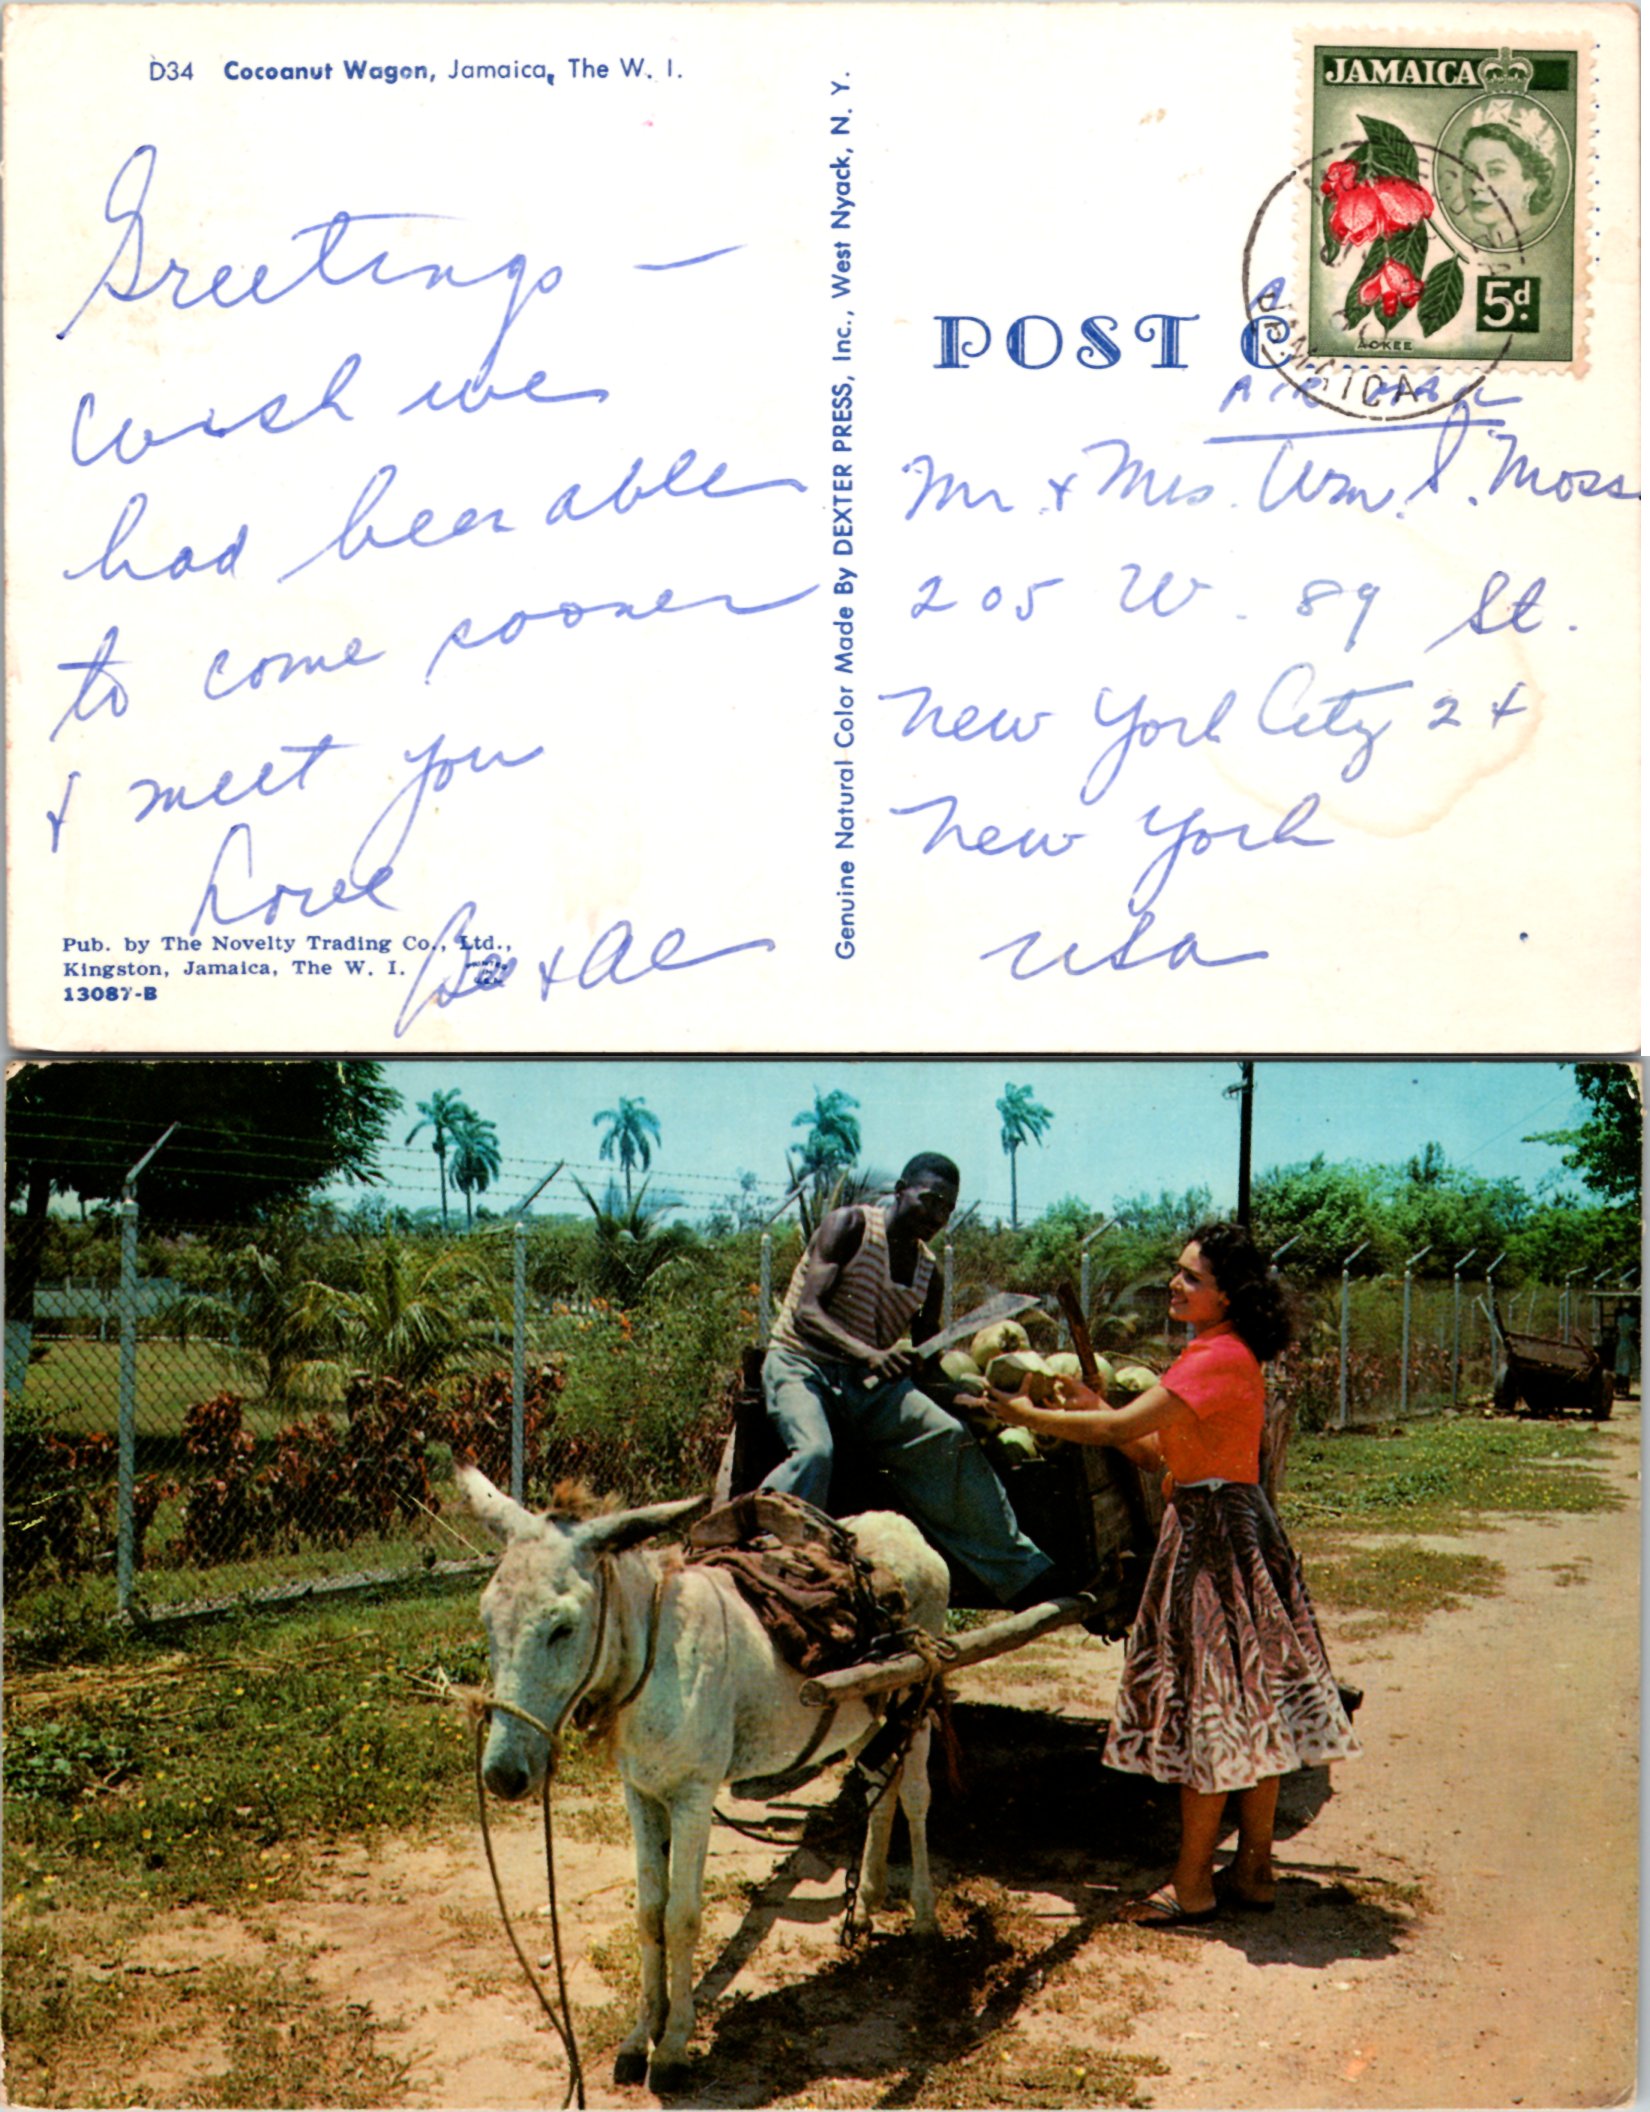 D34 Cocoanut Wagon, Jamaica, The W. I.
Greetings —
wish we
had been able
to come sooner
& meet you
Love
Bea + Al
Pub. by The Novelty Trading Co., Ltd.,
Kingston, Jamaica, The W. I.
13087-B
Genuine Natural Color Made By DEXTER PRESS, Inc., West Nyack, N. Y.
JAMAICA
5d.
ACKEE
JAMAICA
POST C
AIR MAIL
Mr & Mrs. Wm. S. Moss
205 W. 89 St.
New York City 24
New York
USA